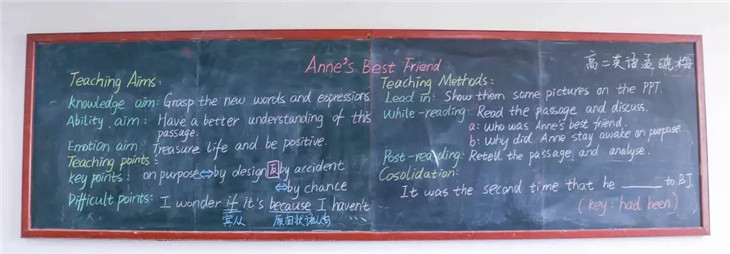 Anne's Best Friend
高二英语孟晓梅
Teaching Aims:
Knowledge aim: Grasp the new words and expressions
Ability aim: Have a better understanding of this
passage.
Emotion aim: Treasure life and be positive.
Teaching points:
Key points: on purpose⇔by design 反 by accident
⇔by chance
Difficult points: I wonder if it's because I haven't...
宾从 原因状语从句
Teaching Methods:
Lead in: Show them some pictures on the PPT.
While-reading: Read the passage and discuss.
a: who was Anne's best friend.
b: why did Anne stay awake on purpose
Post-reading: Retell the passage and analyse.
Cosolidation:
It was the second time that he ______ to BJ.
(key: had been)